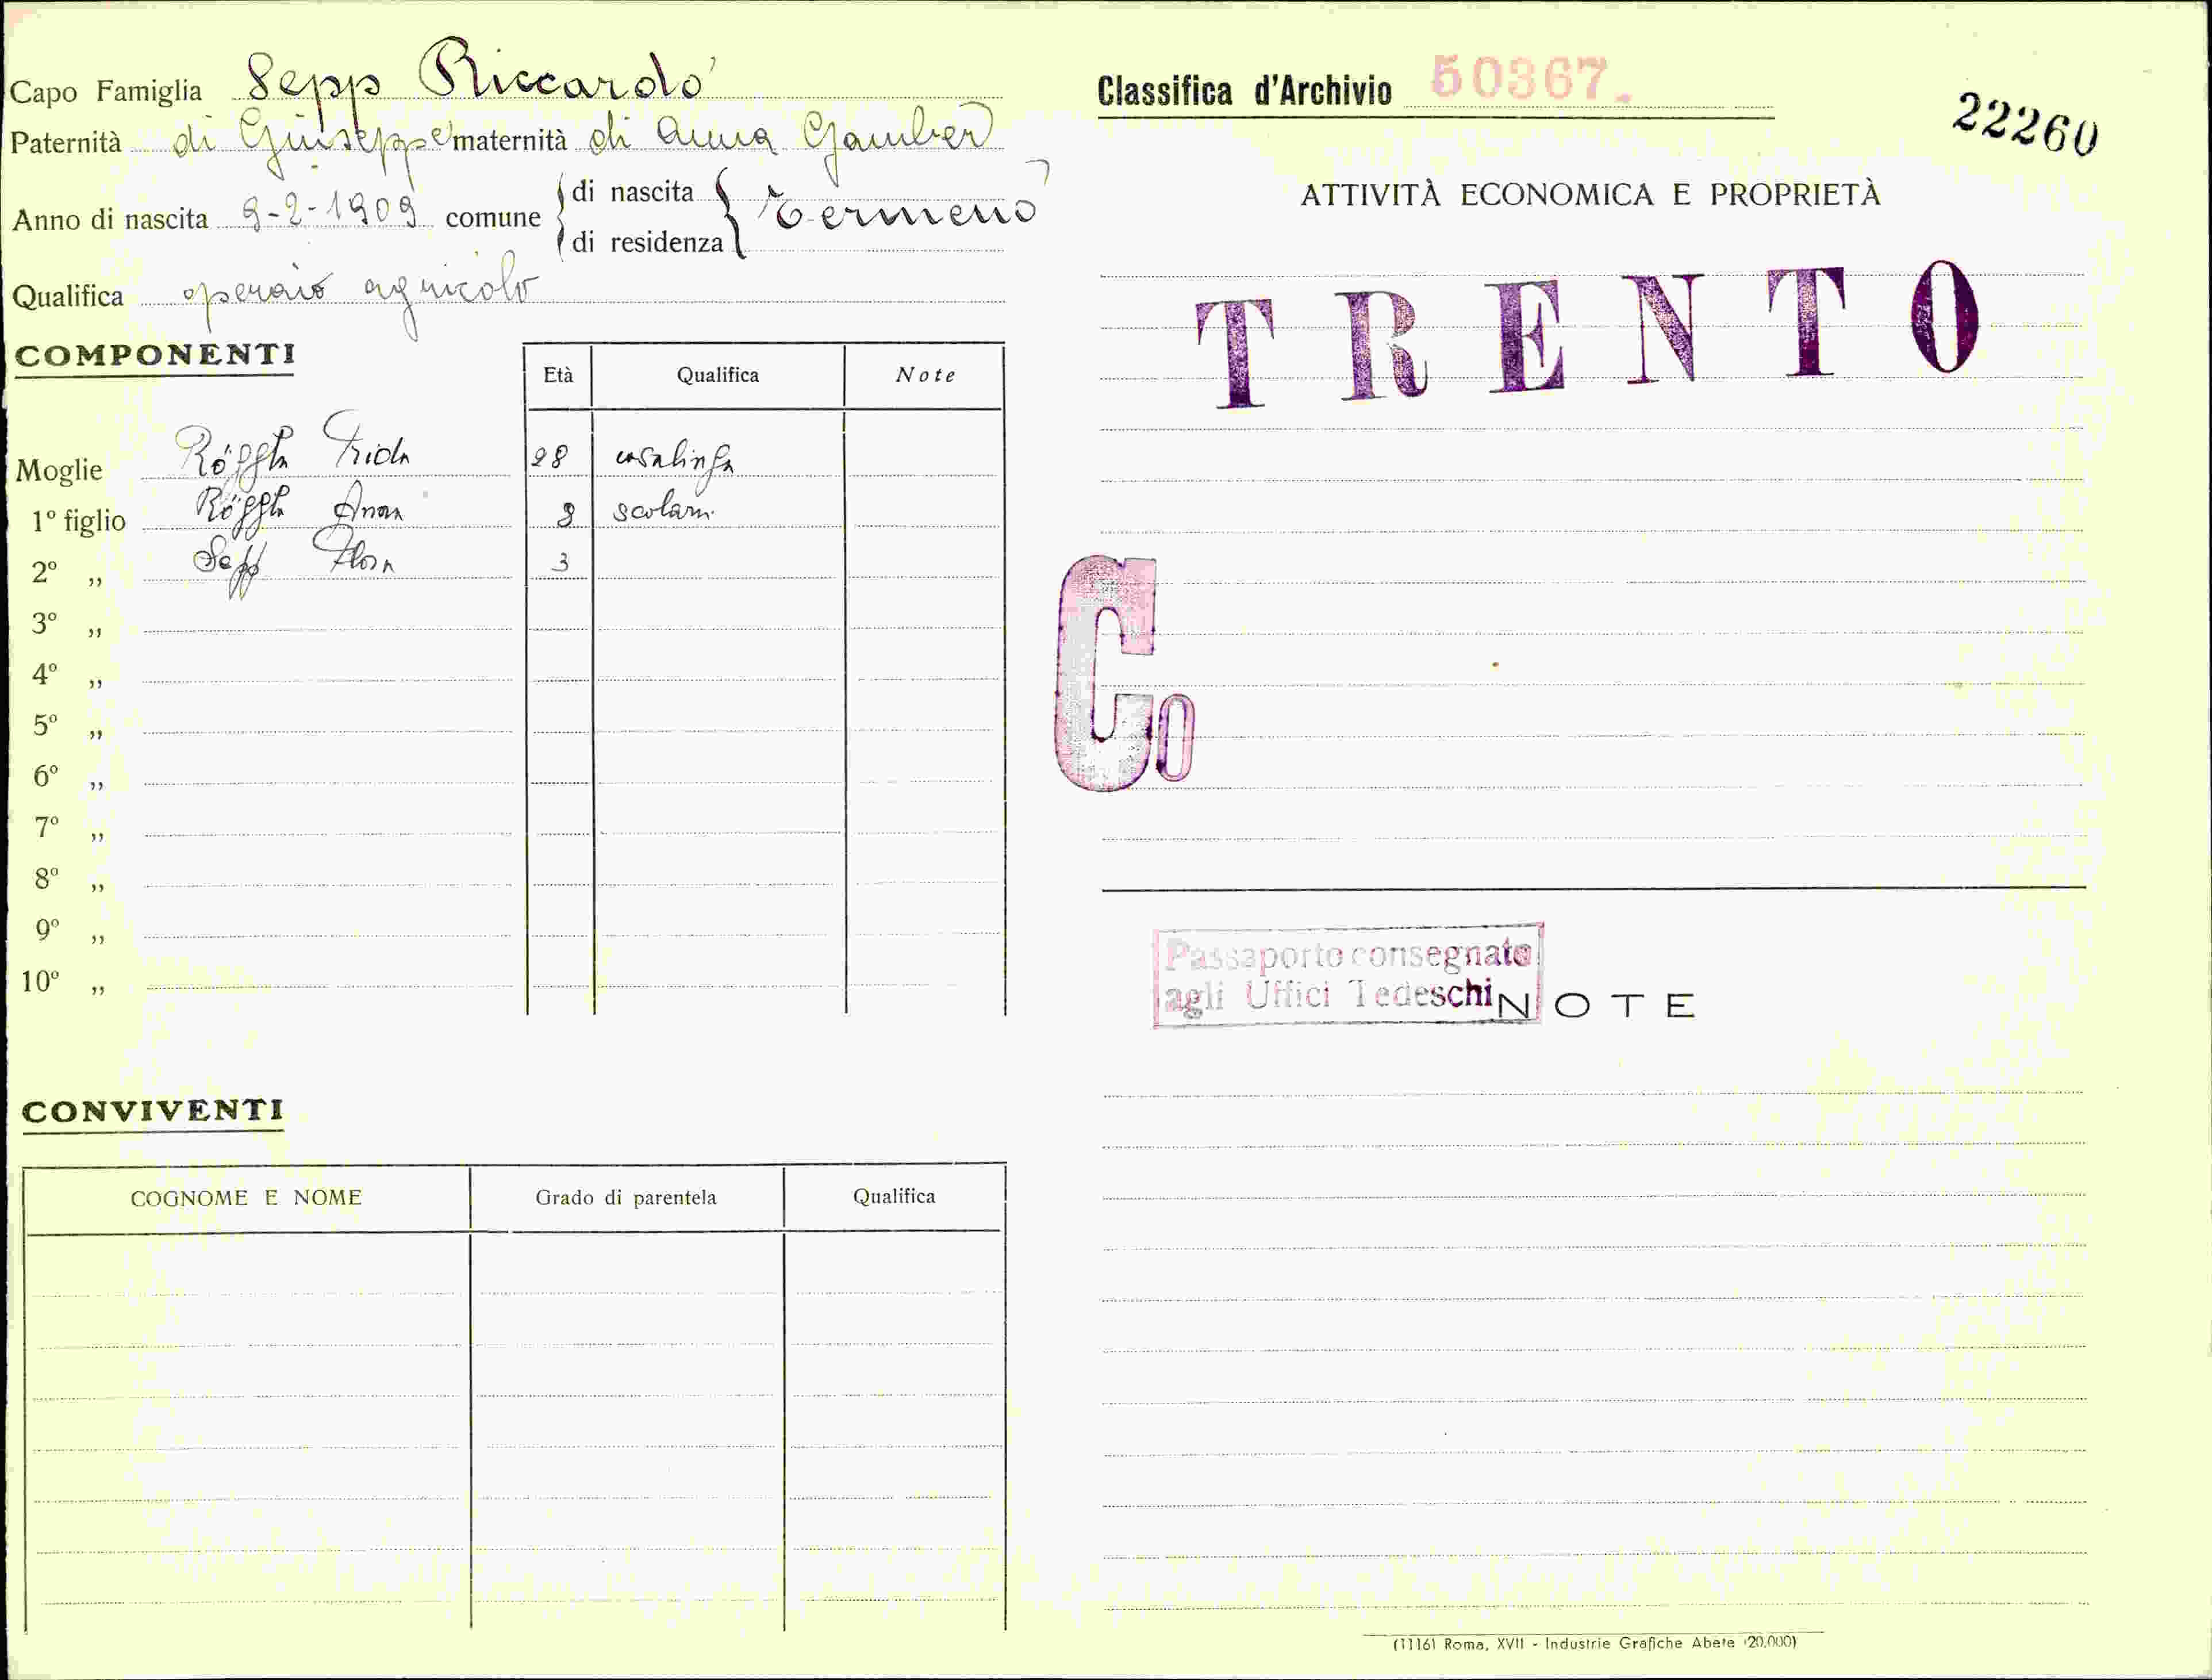 Capo Famiglia Sepp Riccardo
Paternità di Giuseppe maternità di Anna Gamber
Anno di nascita 9-2-1909 comune di nascita Termeno
di residenza
Qualifica operaio agricolo
COMPONENTI
Età Qualifica Note
Moglie Röggla Frida 28 casalinga
1º figlio Röggla Anna 8 scolara
2º „ Sepp Flora 3
3º „
4º „
5º „
6º „
7º „
8º „
9º „
10º „
CONVIVENTI
COGNOME E NOME Grado di parentela Qualifica
Classifica d'Archivio 50367.
22260
ATTIVITÀ ECONOMICA E PROPRIETÀ
TRENTO
Co
Passaporto consegnato
agli Uffici Tedeschi
NOTE
(1116) Roma, XVII - Industrie Grafiche Abete (20.000)